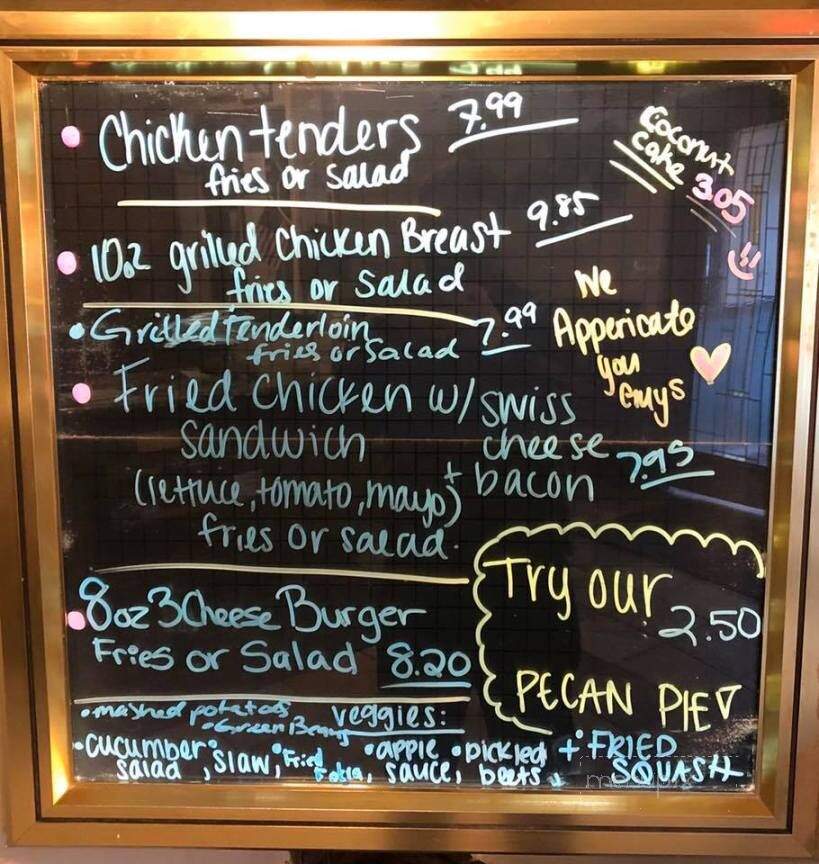 Chicken tenders 7.99
fries or salad
Coconut
Cake 3.05
10oz grilled Chicken Breast 9.85
fries or Salad
Grilled Tenderloin 7.99
fries or Salad
We
Appericate
you
guys
Fried Chicken w/ swiss
Sandwich cheese 7.95
(lettuce, tomato, mayo) + bacon
fries or salad.
8oz 3 Cheese Burger
Fries or Salad 8.20
Try our
2.50
PECAN PIE
mashed potatoes veggies:
Green Beans
cucumber slaw, Fried apple pickled + FRIED
salad, sauce, beets, SQUASH